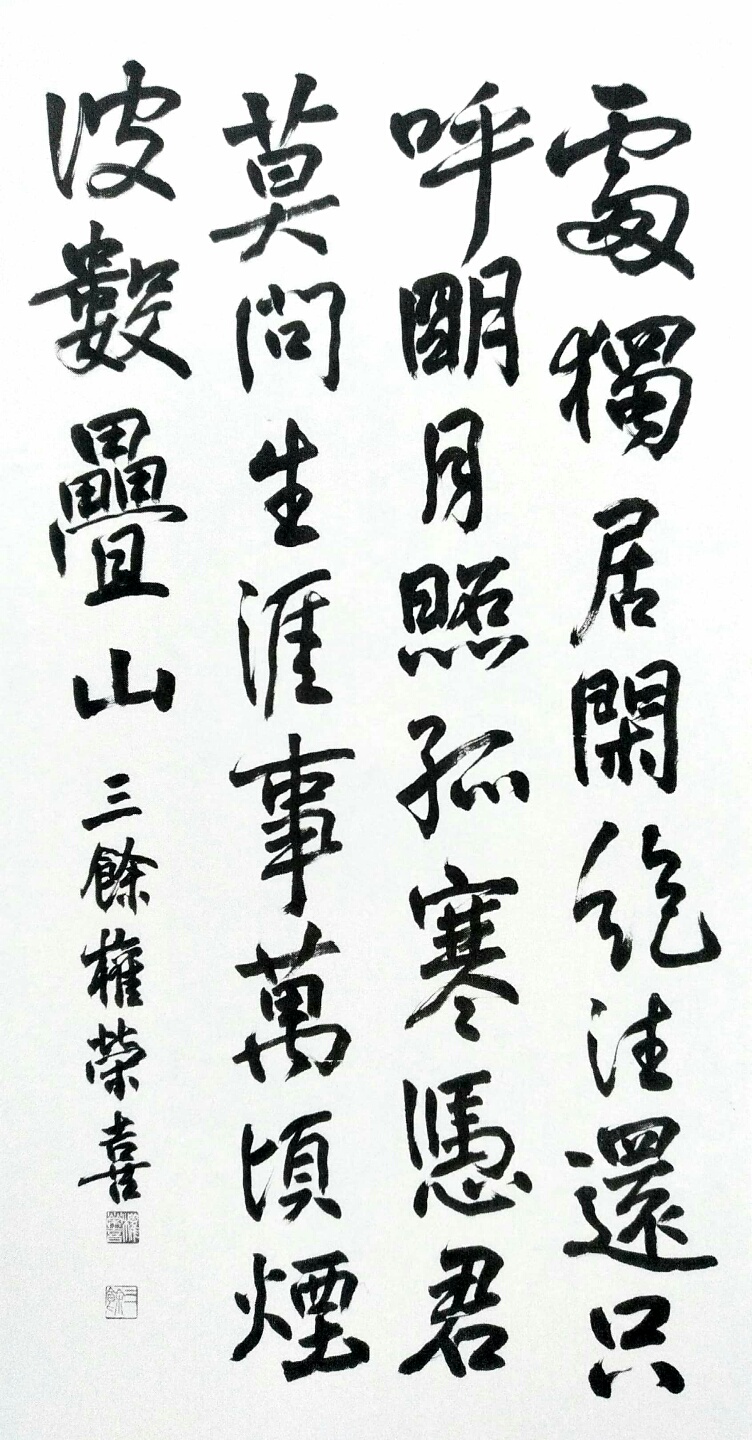 處獨居閑絶往還只
呼明月照孤寒憑君
莫問生涯事萬頃煙
波數疊山 三餘權榮喜